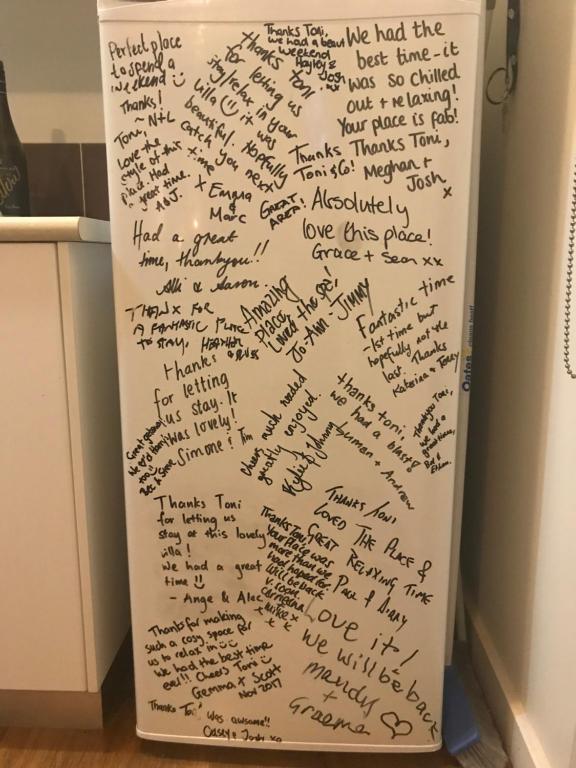 Perfect place
to spend a
weekend
Thanks!
~ N+L
Toni,
Love the
style of this
place. Had
a great time.
A&J.
Thanks Toni
for letting us
stay/relax in your
villa it was
beautiful. Hopefully
catch you next
time
x Emma
&
Marc
Thanks Toni,
we had a beaut
weekend
Hayley &
Josh
xx
We had the
best time - it
was so chilled
out + relaxing!
Your place is fab!
Thanks Toni,
Meghan +
Josh
x
Thanks
Toni & Co!
GREAT
AREA!
Absolutely
love this place!
Grace + Sean xx
Had a great
time, thankyou!!
Alli & Aaron.
THANX FOR
A FANTASTIC PLACE
TO STAY, HEATHER
Amazing
place
Loved the spa!
Jo-Ann - JIMMY
Fantastic time
- 1st time but
hopefully not the
last. Thanks
Katrina & Terry
Thanks
for letting
us stay. It
was lovely!
Simone & Tim
Great getaway!
too!!
Bec & Steve
Cheers much needed
greatly enjoyed.
Kylie & Johnny
thanks toni,
we had a blast!
+ Andrew
Thankyou Toni,
we had a
great time,
Ethan.
Thanks Toni
for letting us
stay at this lovely
villa!
We had a great
time
- Ange & Alec
Thanks Toni
Your place was
more than we
had hoped for
will be back
v. soon.
Mike x
x x
THANKS TONI
LOVED THE PLACE &
GREAT RELAXING TIME
PAUL & DIDDY
Thanks for making
such a cosy space for
us to relax in
We had the best time
ever!! Cheers Toni
Gemma + Scott
Nov 2017
Love it!
We will be back
Mandy
+
Graeme
Thanks Toni
was awsome!!
Casey & Josh xo